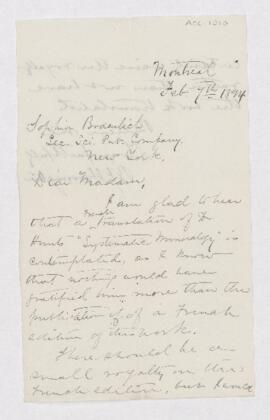 Acc 1010
Montreal
Feb 7th 1894
Sophia Braeunlich
Sec. Sci. Pub. Company.
New York.
Dear Madam,
I am glad to hear
that a French translation of Dr
Hunt's "Systematic Mineralogy" is
contemplated, as I know
that nothing would have
gratified him more than the
publication of a French
edition of his work.
There should be a
small royalty on the
French edition, but